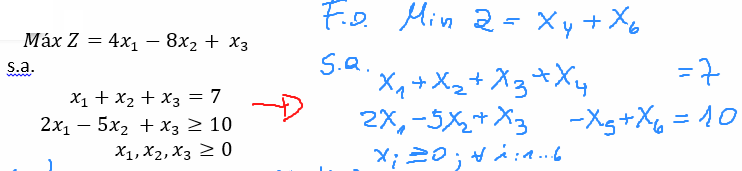 Máx Z = 4x₁ − 8x₂ + x₃
s.a.
x₁ + x₂ + x₃ = 7
2x₁ − 5x₂ + x₃ ≥ 10
x₁, x₂, x₃ ≥ 0
F.O. Min Z = X₄ + X₆
S.a.
X₁ + X₂ + X₃ + X₄ = 7
2X₁ - 5X₂ + X₃ - X₅ + X₆ = 10
Xᵢ ≥ 0 ; ∀ i : 1...6